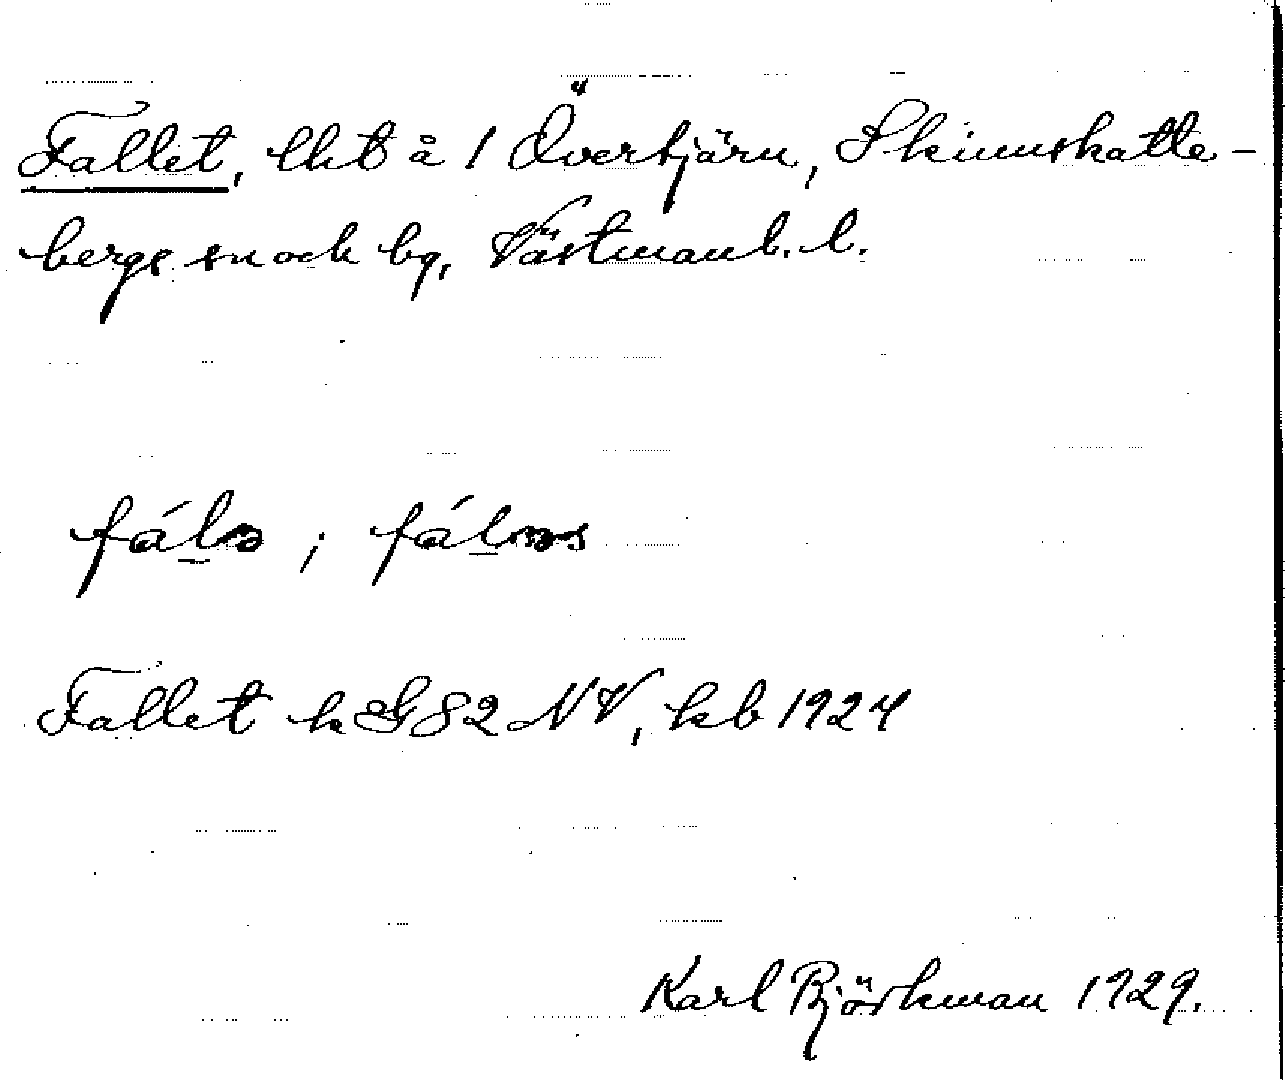 Fallet, lht å 1 Övertjärn, Skinnskatte-
bergs sn och bg, Västmanl. l.
fálə ; fáləs
Fallet h G82 NV, kb 1924
Karl Björkman 1929.